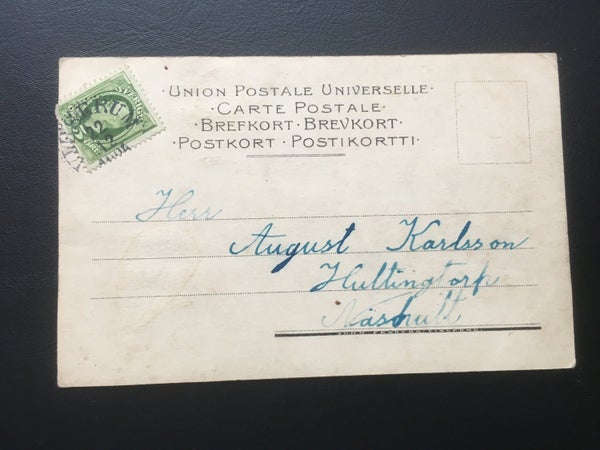 · UNION POSTALE UNIVERSELLE ·
· CARTE POSTALE ·
· BREFKORT · BREVKORT ·
· POSTKORT · POSTIKORTTI ·
Herr
August Karlsson
Hultingtorp
Näshult